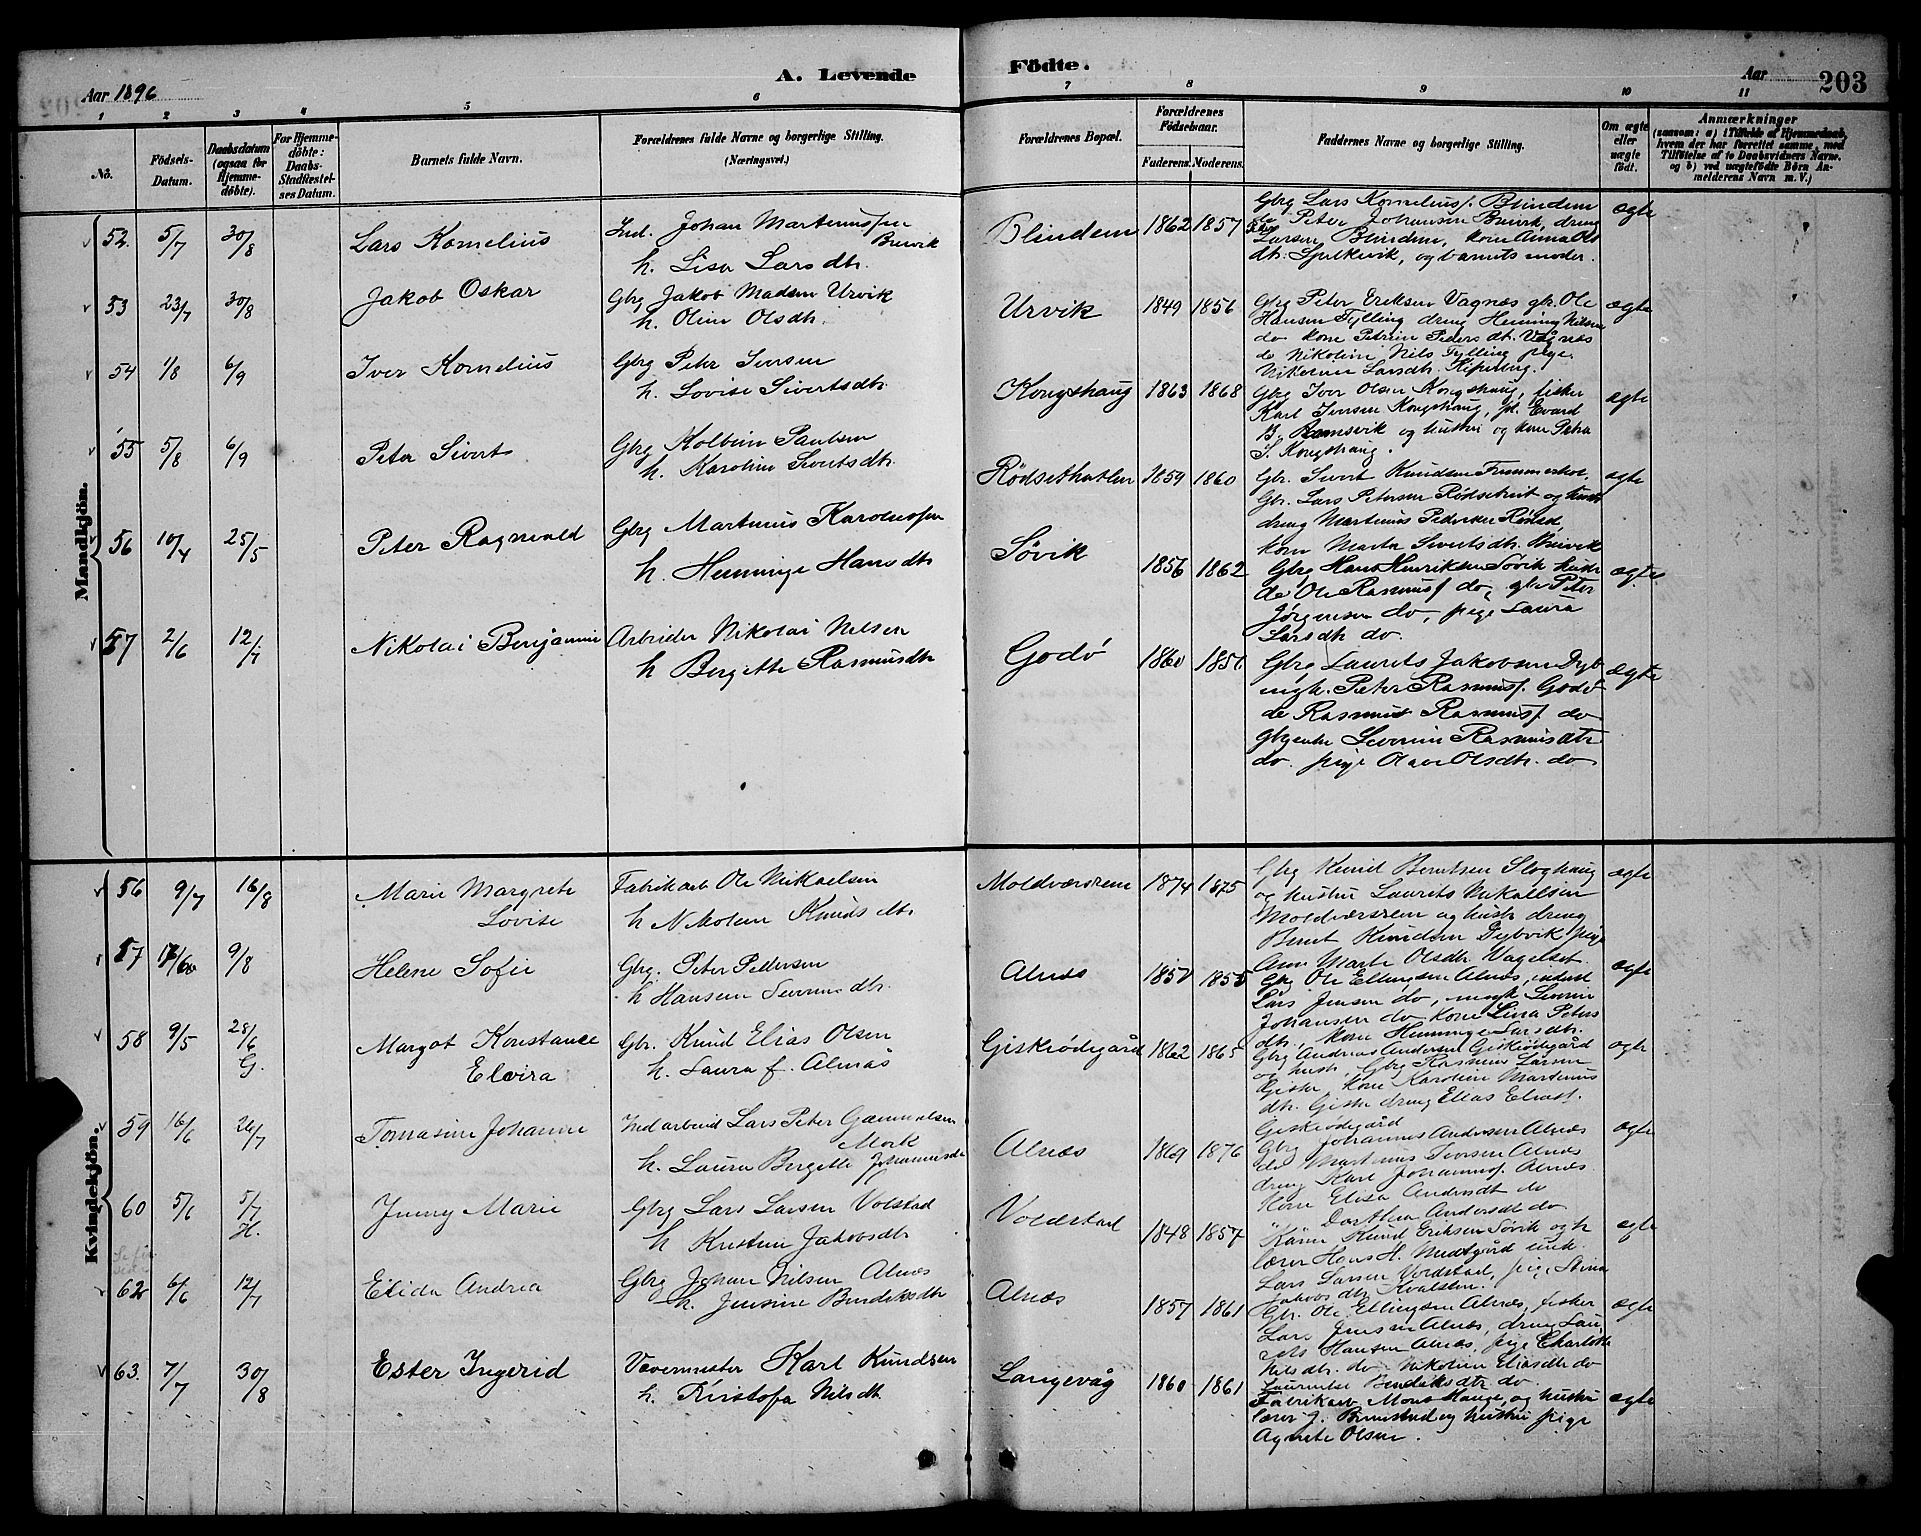 A. Levende Födte.
Aar 1896
Aar 203
1 2 3 4 5 6 7 8 9 10 11
No.
Födsels-Datum.
Daabsdatum (ogsaa for Hjemmedöbte).
For Hjemmedöbte: Daabs-Stadfæstelses Datum.
Barnets fulde Navn.
Forældrenes fulde Navne og borgerlige Stilling. (Næringsvei.)
Forældrenes Bopæl.
Forældrenes Födselsaar.
Faderens. Moderens.
Faddernes Navne og borgerlige Stilling.
Om ægte eller uægte født.
Anmærkninger
(saasom: a) i Tilfælde af Hjemmedaab, hvem der har forrettet samme, med Tilföielse af to Daabsvidners Navne, og b) ved uægtefödte Börn Anmelderens Navn m. V.)
Mandkjön.
52. 5/7 30/8 Lars Kornelius
Ind. Johan Martinussen Buvik
h. Lisa Larsdtr.
Blindem 1862 1857
Gbrg Lars Kornelius. Blindem
do Peter Johansen Buvik, dreng
Larsen Blindem, kone Anna Ols
dtr. Spjelkevik, og barnets moder.
ægte
53 23/7 30/8 Jakob Oskar
Gbrg Jakob Madsen Urvik
h. Oline Olsdtr.
Urvik 1849 1856
Gbrg Peter Eriksen Vagnæs gbr. Ole
Hansen Fylling dreng Henning Nilsen
do kone Petrine Peders dt. Vågnæs
do Nikoline Nils Fylling pige
Larsdtr.
ægte
54 1/8 6/9 Iver Kornelius
Gbrg Peter Iversen
h. Lovise Sivertsdtr
Kongshaug 1863 1868
Gbrg Iver Olsen Kongshaug, fisker
Karl Iversen Kongshaug, Evard
B. Ramsvik og hustru og kone Petra
S. Kongshaug.
ægte
55 5/8 6/9 Peter Sivert
Gbrg Kolbein Paulsen
h. Karoline Sivertsdtr.
Rödsethatlen 1859 1860
Gbr. Sivert Knudsen
Gbr. Lars Petersen og hust
dreng Martinus Pedersen
kone Marta Sivertsdtr. Breivik
ægte
56 10/4 25/5 Peter Ragnvald
Gbrg Martinus Karolussen
h. Hemminge Hansdtr
Søvik 1856 1862
Gbrg Hans Henriksen Søvik hustr
do Ole Rasmus. do, gbr Peter
Jørgensen do, pige Laura
Larsdtr do.
ægte
57 2/6 12/7 Nikolai Benjamin
Arbeider Nikolai Nilsen
h Bergitte Rasmusdtr
Godø 1860 1851
Gbrg Laurits Jakobsen Dyb
Peter Rasmus. Godø
do Rasmus Rasmus. do
gbgenke Severine Rasmusdtr
do. pige Olsdtr. do
ægte
Kvindekjön.
56 9/7 16/8 Marie Margrete
Lovise
Fabrikarb Ole Mikaelsen
h Nikoline Knudsdtr.
Moldværsrem 1874 1875
Gbrg Knud Berntsen
og hustru Laurits Mikaelsen
Moldværsrem og hustr dreng
Bernt Knudsen Dybvik pige
Ane Marte Olsdtr
ægte
57 9/8 Helene Sofie
Gbrg. Peter Pedersen
h Hansine
Alnæs 1855
Gbrg Ole Ellingsen Alnæs,
Lars Jensen do, Severin
Johansen do kone Lina Peters
dtr. kone Hemminge Larsdtr.
ægte
58 9/5 28/6 G. Margot Konstance
Elvira
Gbr. Knud Elias Olsen
h. Laura f. Alnæs
Giskeødegård 1862 1865
Gbrg Andreas Andersen Giskeødegård
og hust., Gbrg Rasmus Larsen
Giske, kone Karoline Martinus
dtr. Giske dreng Elias
Giskeødegård
ægte
59 16/6 26/7 Tomasine Johanne
Indarbeid Lars Peter Gammelsen
Mork
h. Laura Bergitte Johannesdtr
Alnæs 1869 1876
Gbrg Johannes Andersen Alnæs
do Martinus Iversen Alnæs
dreng Karl Johannes. Alnæs
Kone Elisa Andersdt do
" Dorthea Andersdt do
ægte
60 5/6 5/7 H. Jenny Marie
Gbrg Lars Larsen Volstad
h Kristine Jakobsdtr
Voldstad 1848 1857
Knud Eriksen Søvik og h
lærer Hans H. Medtgård
Lars Larsen Voldstad, pige Stina
Jakobsdtr
ægte
62 6/6 12/7 Elida Andrea
Gbrg Johan Nilsen Alnæs
h. Jensine Bendiksdtr
Alnæs 1857 1861
Gbr. Ole Ellingsen Alnæs, fisker
Lars Jensen Alnæs, dreng Lau
rits Hansen Alnæs, pige Charlotte
Nilsdtr. do Nikoline Eliasdtr do
Bendiksdtr do.
ægte
63. 7/7 30/8 Ester Ingerid
Vævermester Karl Knudsen
h. Kristofa Nilsdtr
Langevåg 1860 1861
Fabrikarb. Mons Hauge, og hustru
lærer J. og hustru pige
Agnete Olsen.
ægte